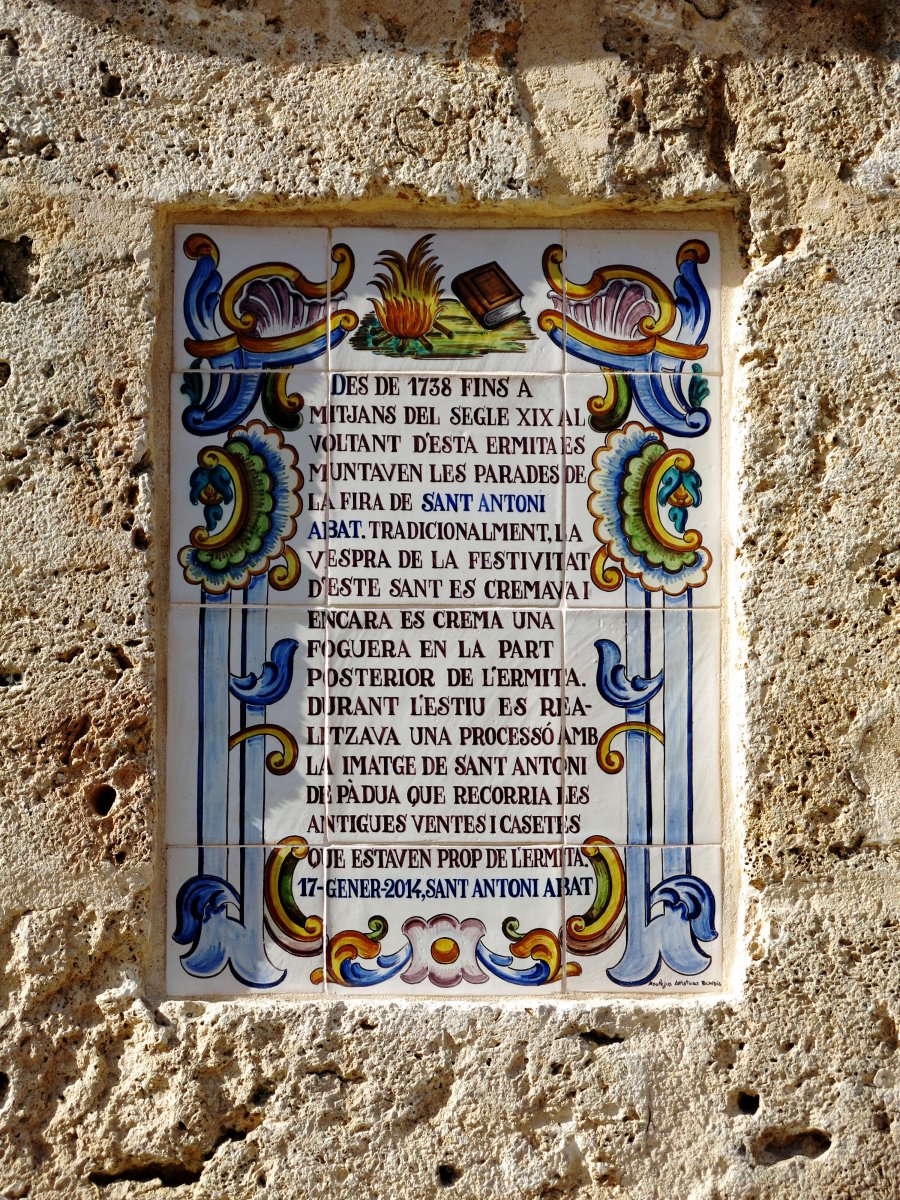 DES DE 1738 FINS A
MITJANS DEL SEGLE XIX AL
VOLTANT D'ESTA ERMITA ES
MUNTAVEN LES PARADES DE
LA FIRA DE SANT ANTONI
ABAT. TRADICIONALMENT, LA
VESPRA DE LA FESTIVITAT
D'ESTE SANT ES CREMAVA I
ENCARA ES CREMA UNA
FOGUERA EN LA PART
POSTERIOR DE L'ERMITA.
DURANT L'ESTIU ES REA-
LITZAVA UNA PROCESSÓ AMB
LA IMATGE DE SANT ANTONI
DE PÀDUA QUE RECORRIA LES
ANTIGUES VENTES I CASETES
QUE ESTAVEN PROP DE L'ERMITA.
17-GENER-2014, SANT ANTONI ABAT